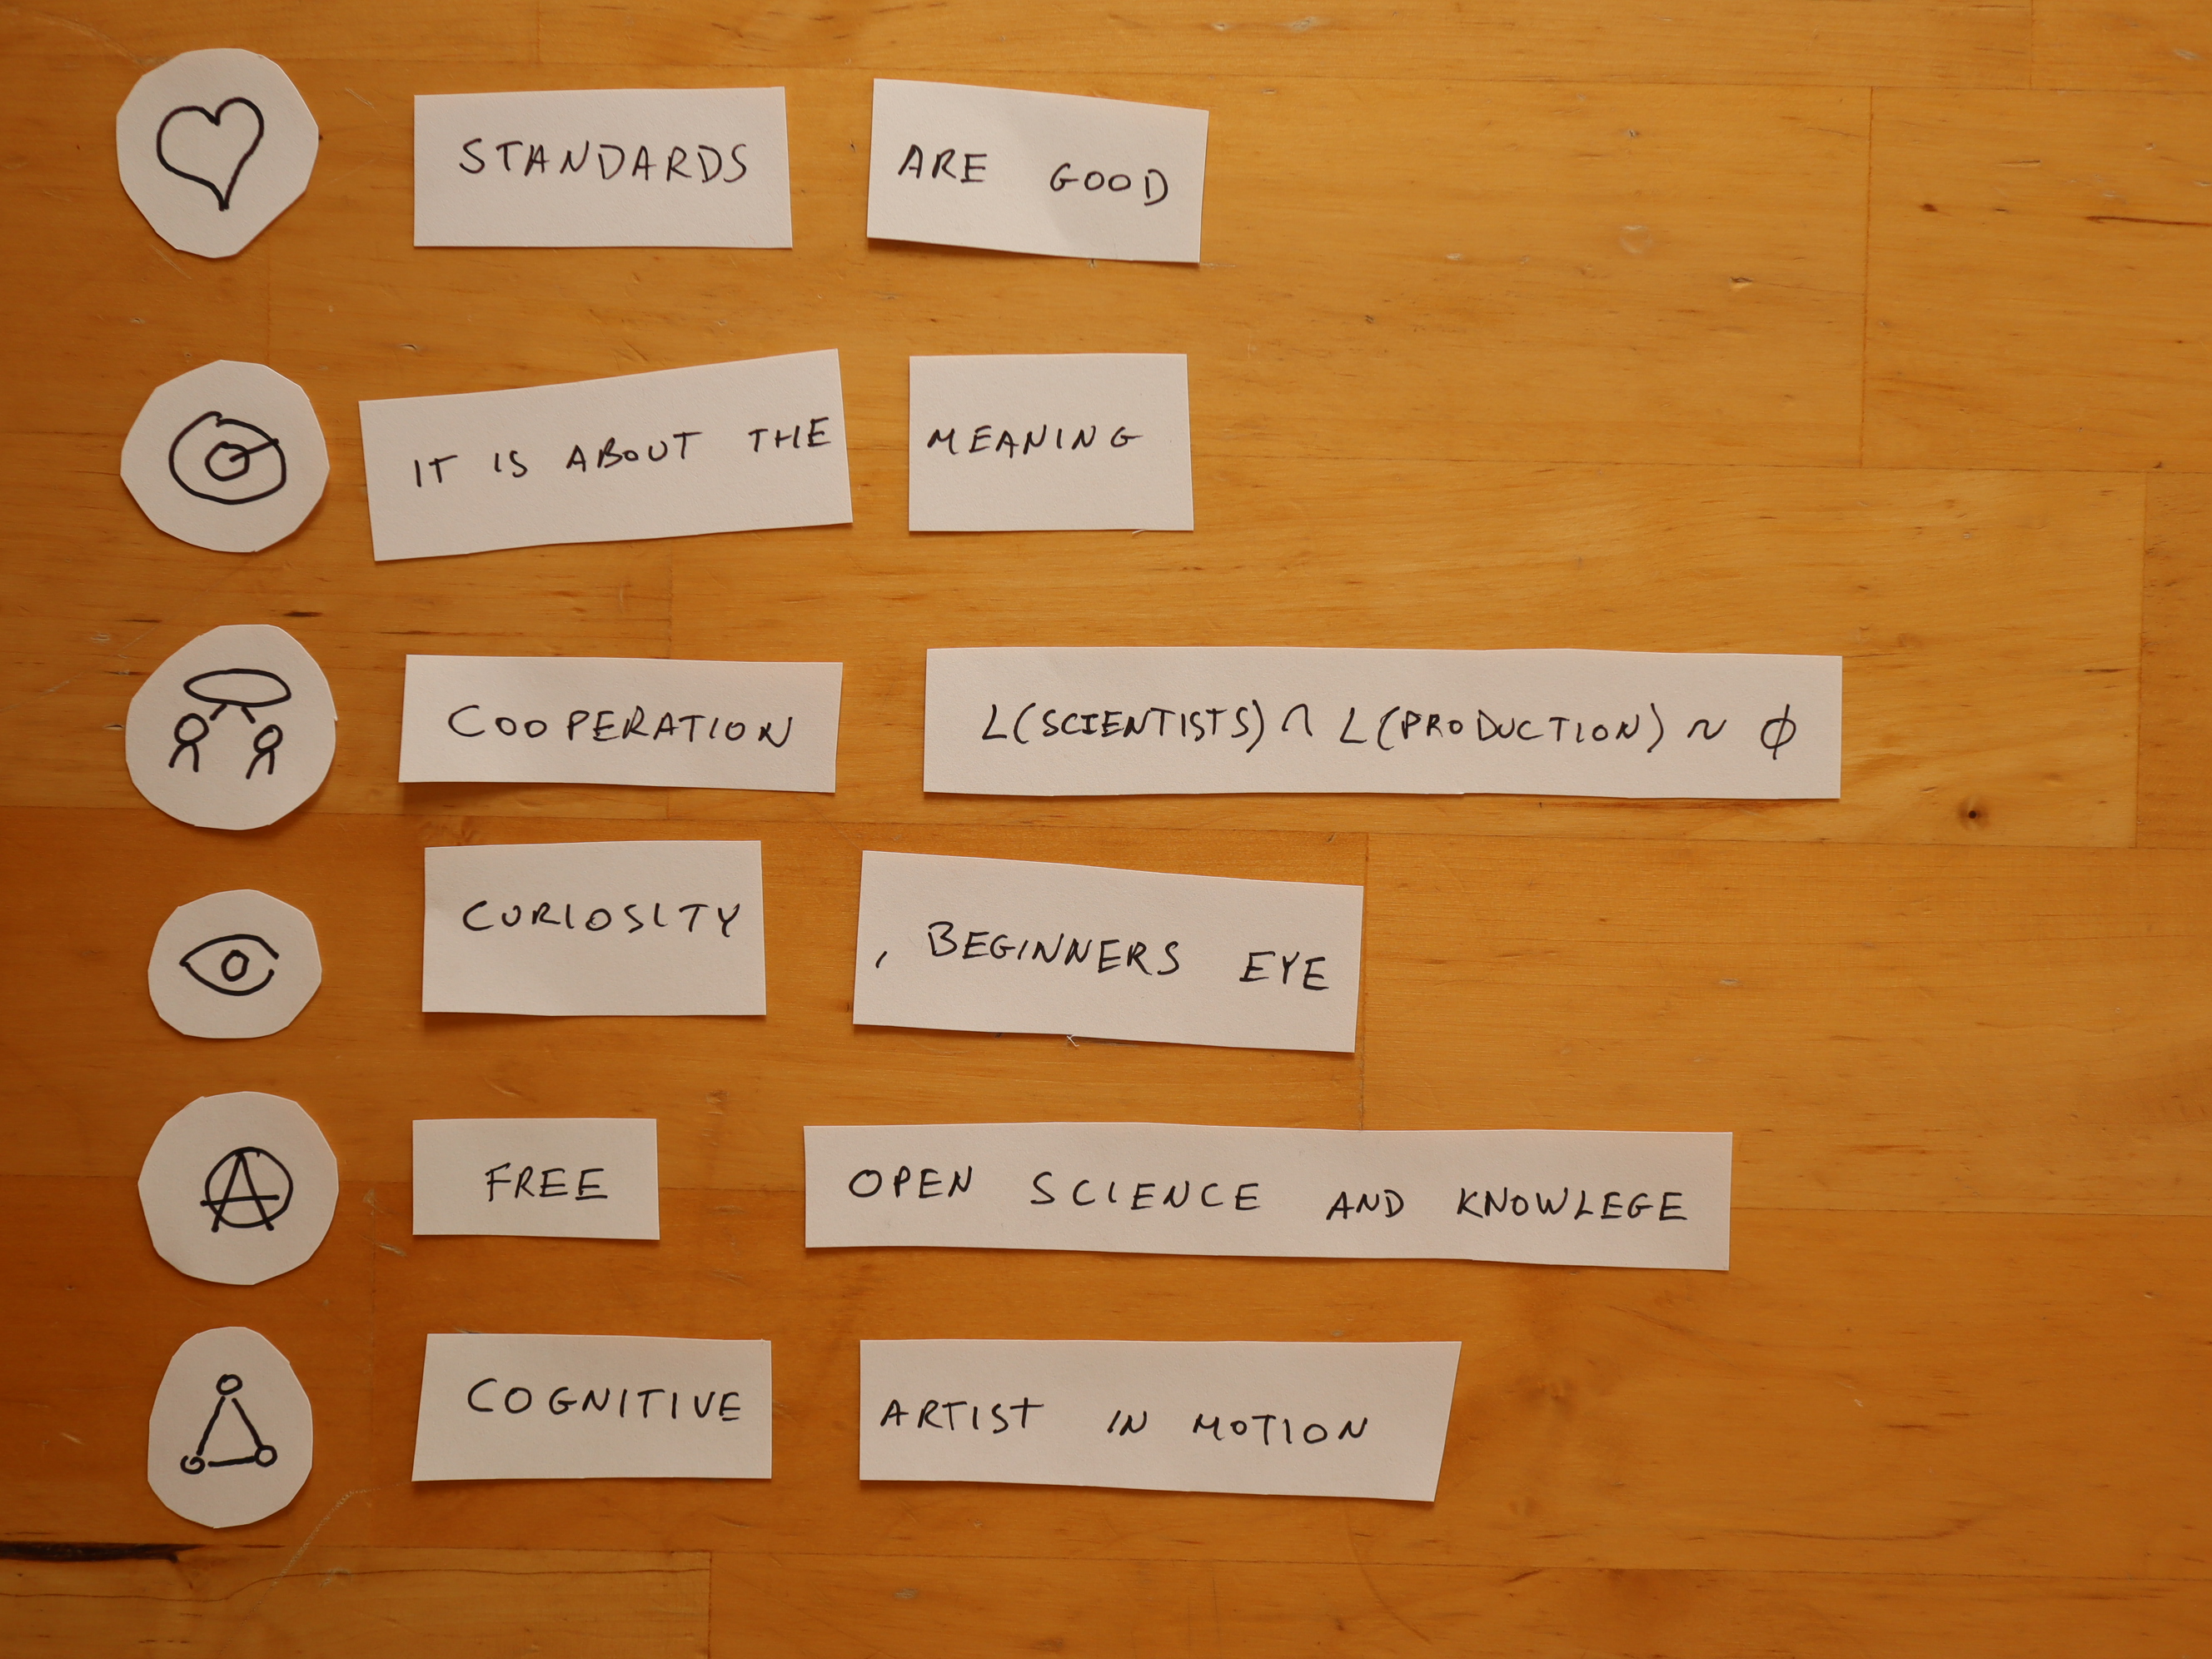 STANDARDS ARE GOOD
IT IS ABOUT THE MEANING
COOPERATION L(SCIENTISTS) ∩ L(PRODUCTION) ~ ϕ
CURIOSITY , BEGINNERS EYE
FREE OPEN SCIENCE AND KNOWLEGE
COGNITIVE ARTIST IN MOTION